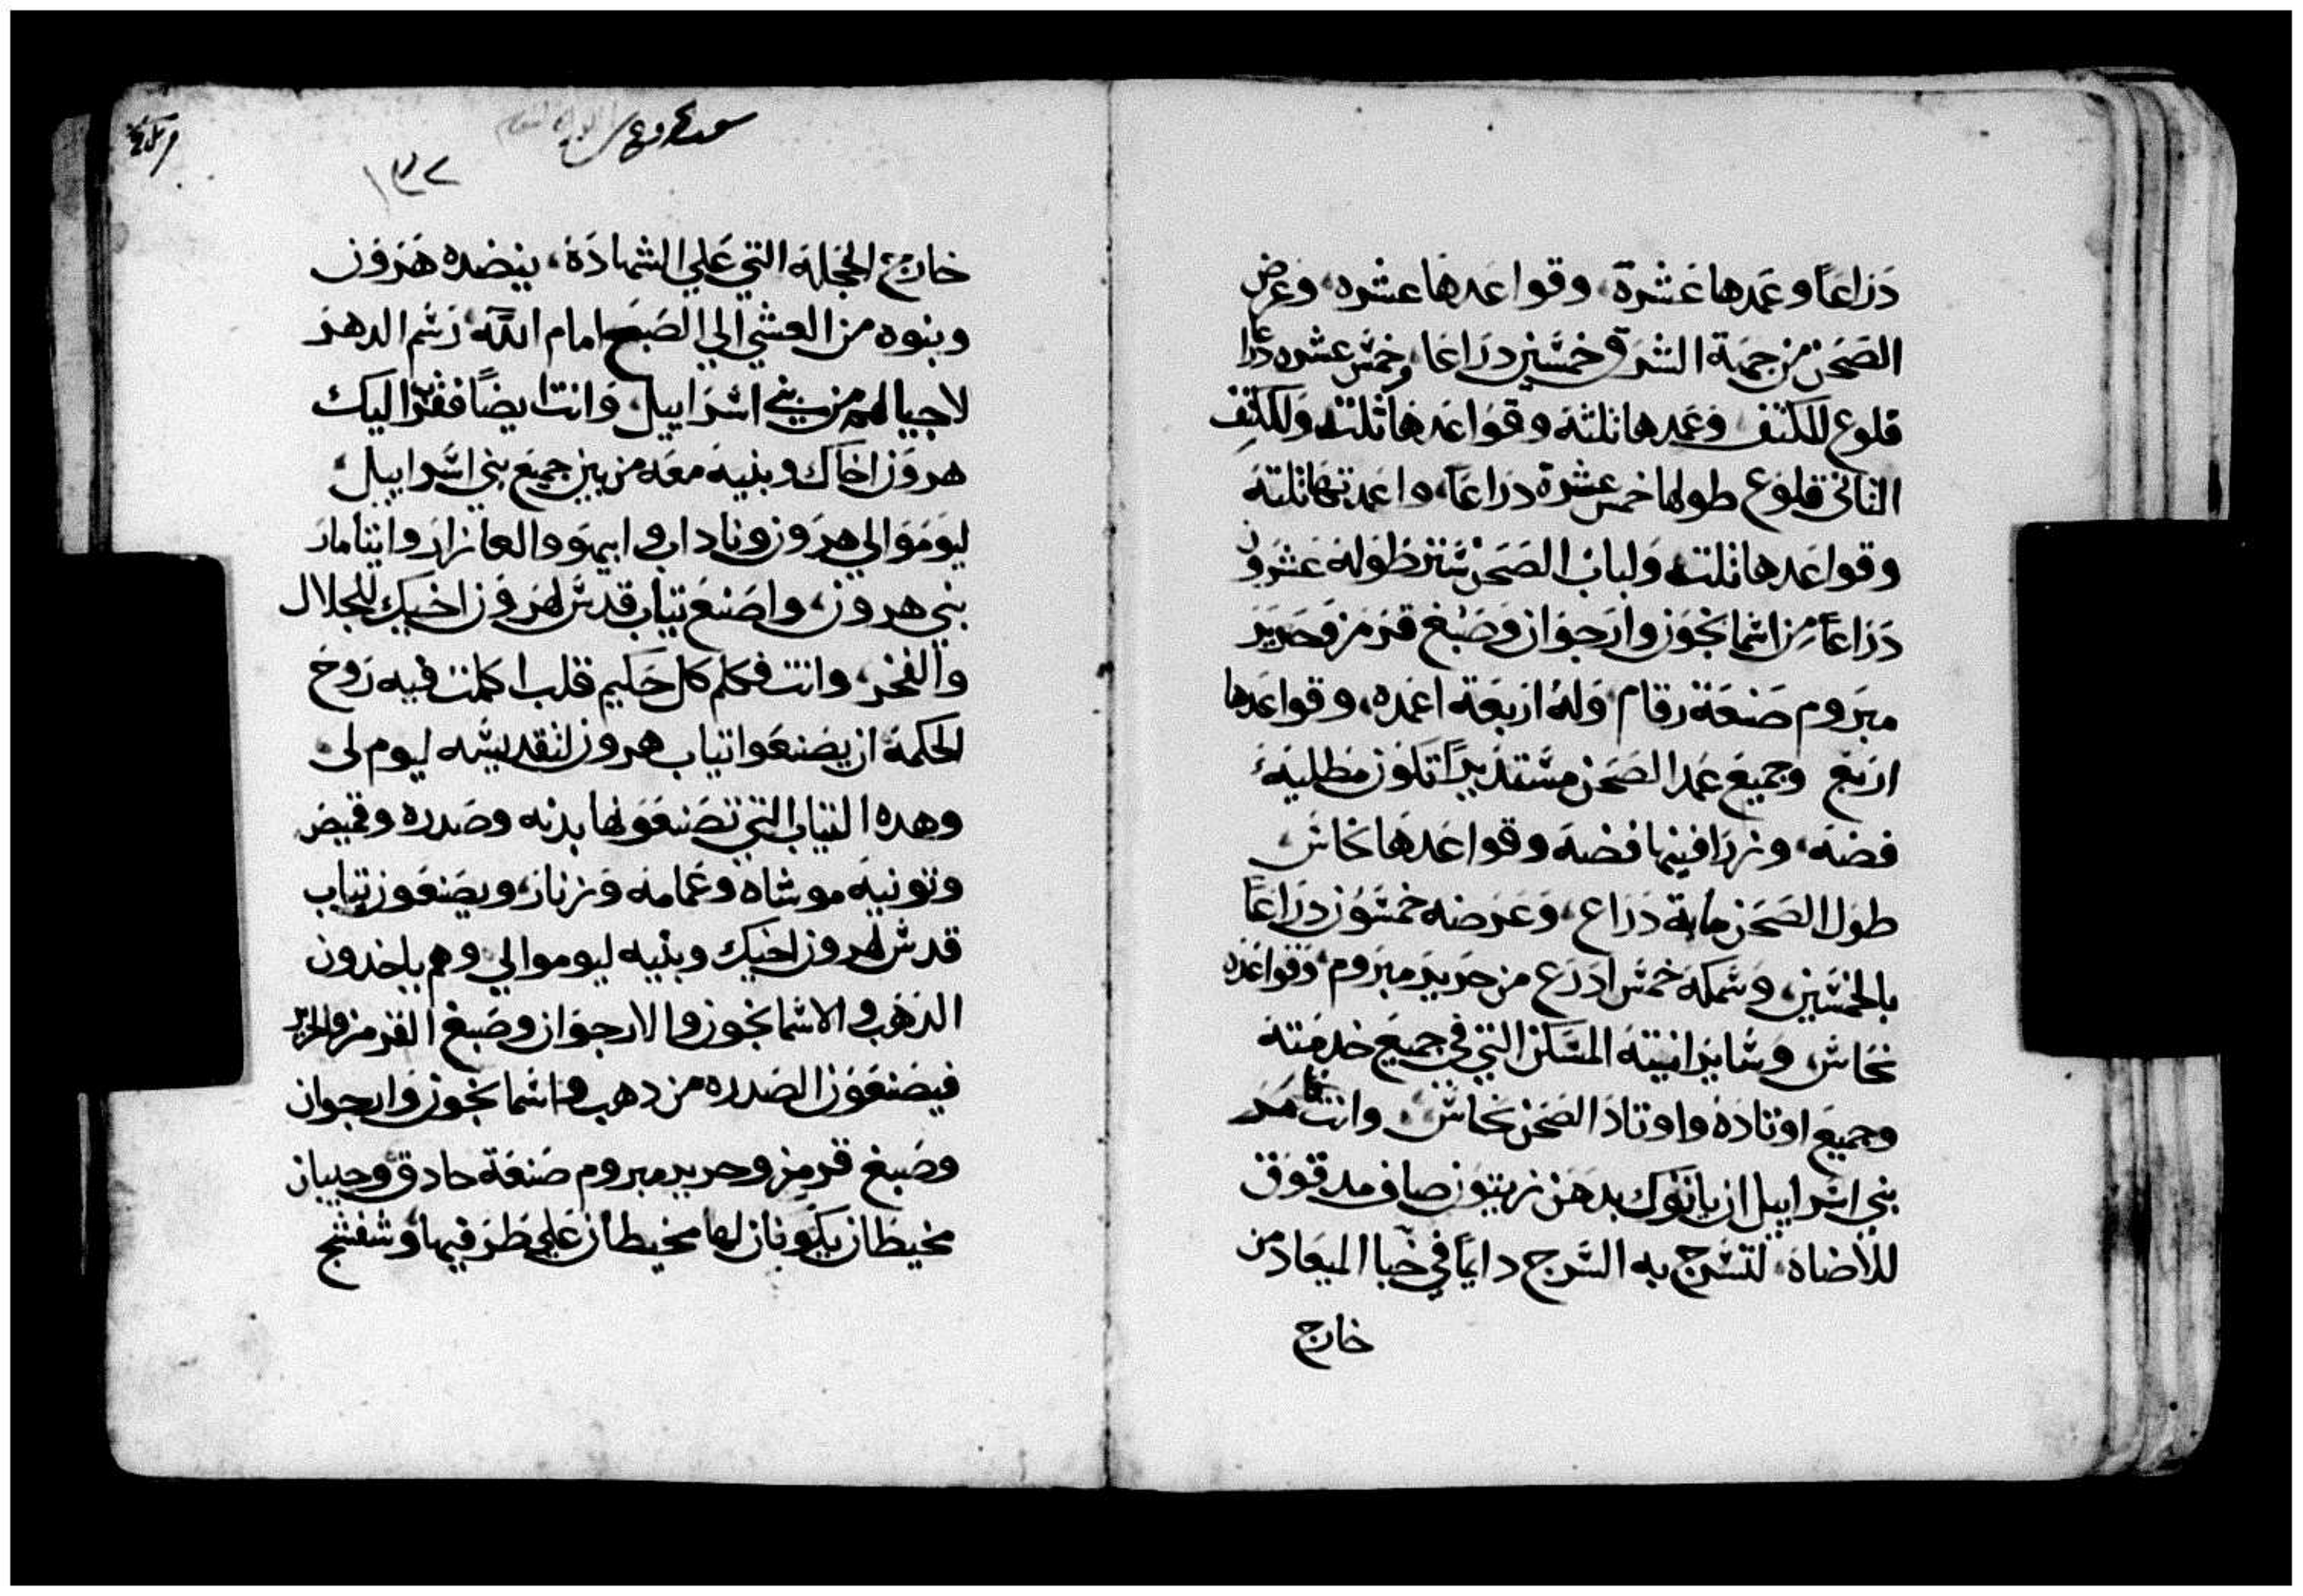 دراعًا وعمدها عشرة، وقواعدها عشره، وعرض
الصحن من جهة الشرق خمسين دراعا، وخمس عشره دراعا
قلوع للكتف وعمدها ثلثة وقواعدها ثلثه وللكتف
الثاني قلوع طولها خمس عشرة دراعًا، واعمدتها ثلثة
وقواعدها ثلثه ولباب الصحن ستر طوله عشرون
دراعًا من اشمانجون وارجوان وصبغ قرمز وحرير
مبروم صنعة رقام وله اربعة اعمده، وقواعدها
اربع وجميع عمد الصحن مستديرًا تكون مطلية
فضة، وزرافينها فضة وقواعدها نحاس
طول الصحن ماية دراع، وعرضه خمسون دراعًا
بالخمسين، وسمكه خمس ادرع من حرير مبروم، وقواعده
نحاس، وساير انيتة المسكن التي في جميع خدمته
وجميع اوتاده واوتاد الصحن نحاس، وانت فامر
بني اسراييل ان ياتوك بدهن زيتون صاف مدقوق
للاضاه، لتسرج به السرج دايمًا في خبا الميعاد من
خارج
١٣٢
خارج الحجلة التي علي الشهادة، ينضده هرون
وبنوه من العشي الي الصبح امام الله رسم الدهر
لاجيالهم من بني اسراييل، وانت ايضًا فقرب اليك
هرون اخاك وبنيه معه من بين جميع بني اسراييل
ليوموا لي هرون وناداب وابيهو والعازار وايتامار
بني هرون، واصنع تياب قدس لهرون اخيك للجلال
والفخر، وانت فكلم كل حكيم قلب اكملت فيه روح
الحكمة ان يصنعوا تياب هرون لتقديسه ليوم لي
وهده التياب التي تصنعونها بدنه وصدره وقميص
وتونية موشاه وعمامه وزنار، ويصنعون تياب
قدس لهرون اخيك وبنيه ليوموا لي وهم ياخدون
الدهب والاشمانجون والارجوان وصبغ القرمز والحرير
فيصنعون الصدره من دهب واشمانجون وارجوان
وصبغ قرمز وحرير مبروم صنعة حادق وجيبان
مخيطان يكونان لها مخيطان علي طرفيها وشفشج